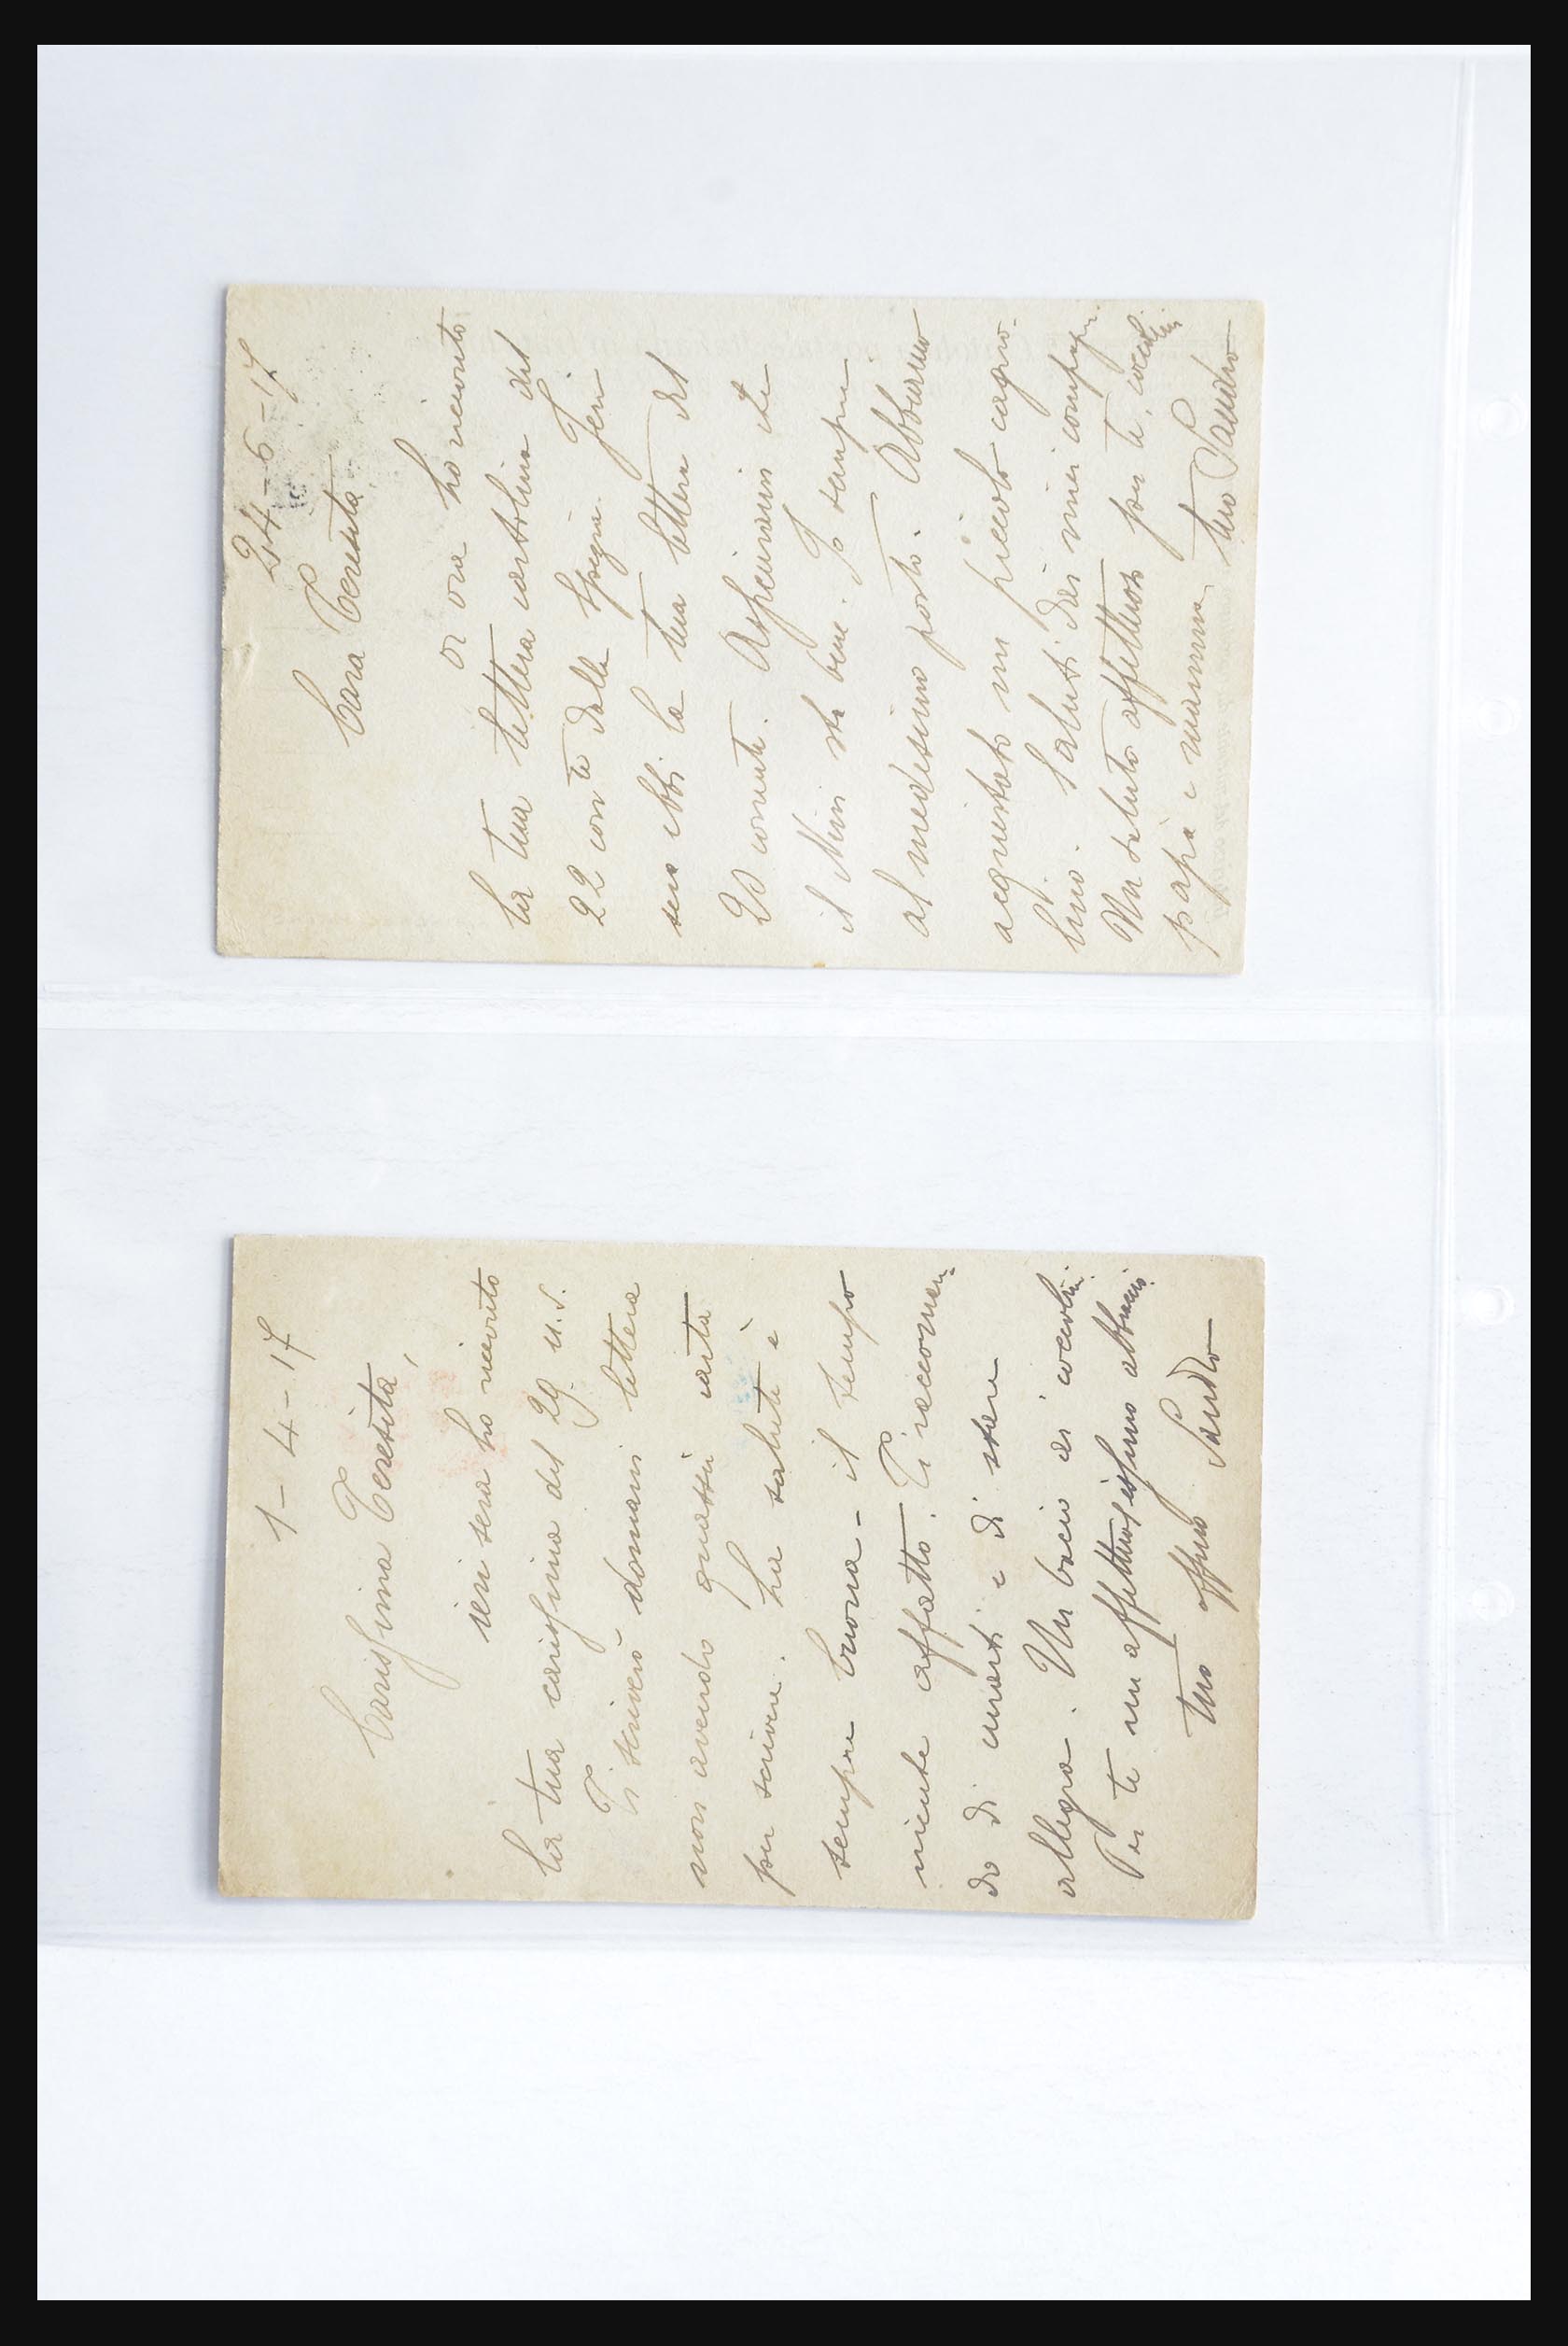 24-6-17
Cara Teresita,
or ora ho ricevuto
la tua lettera cartolina del
22 corr te dalla Spezia. Jeri
sera ebbi la tua lettera del
20 corrente. Assicurami che
il Nini sta bene. Io sempre
al medesimo posto. Abbiamo
acquistato un piccolo cagno-
lino. Saluti dai miei compagni.
Un saluto affettuoso per te,
papà e mamma, tuo Sandro
1-4-17
Carissima Teresita,
ieri sera ho ricevuto
la tua carissima del 29 u.s.
Ti scriverò domani lettera
non avendo quassù carta
per scrivere. La salute è
sempre buona - il tempo
niente affatto. Ti raccoman-
do di curarti e di stare
allegra. Un bacio ai
Per te un affettuosissimo abbraccio
tuo affmo Sandro